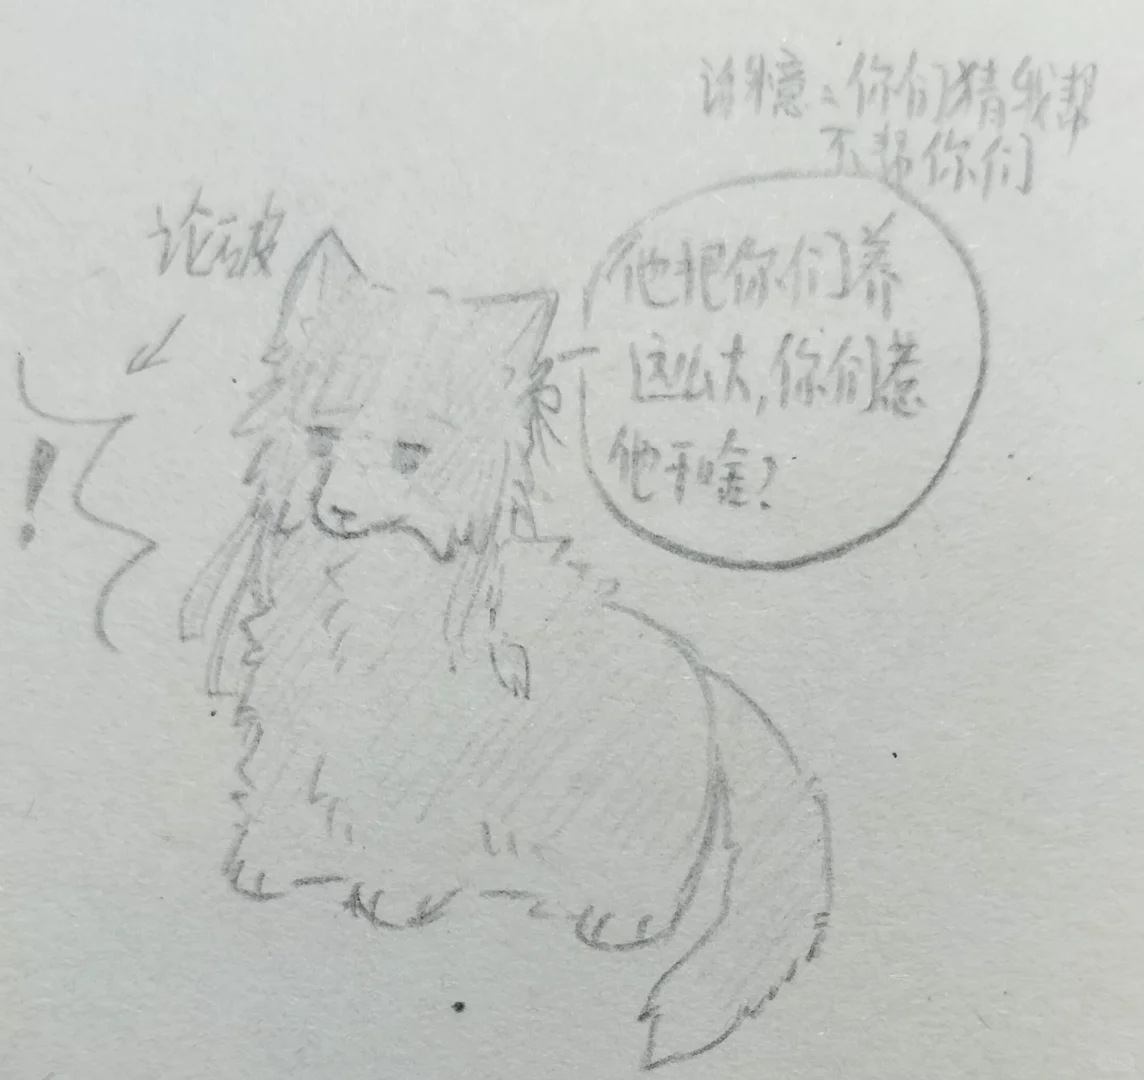 憶：你们猜我帮
不帮你们
论破
他把你们养
这么大，你们惹
他干啥？
！